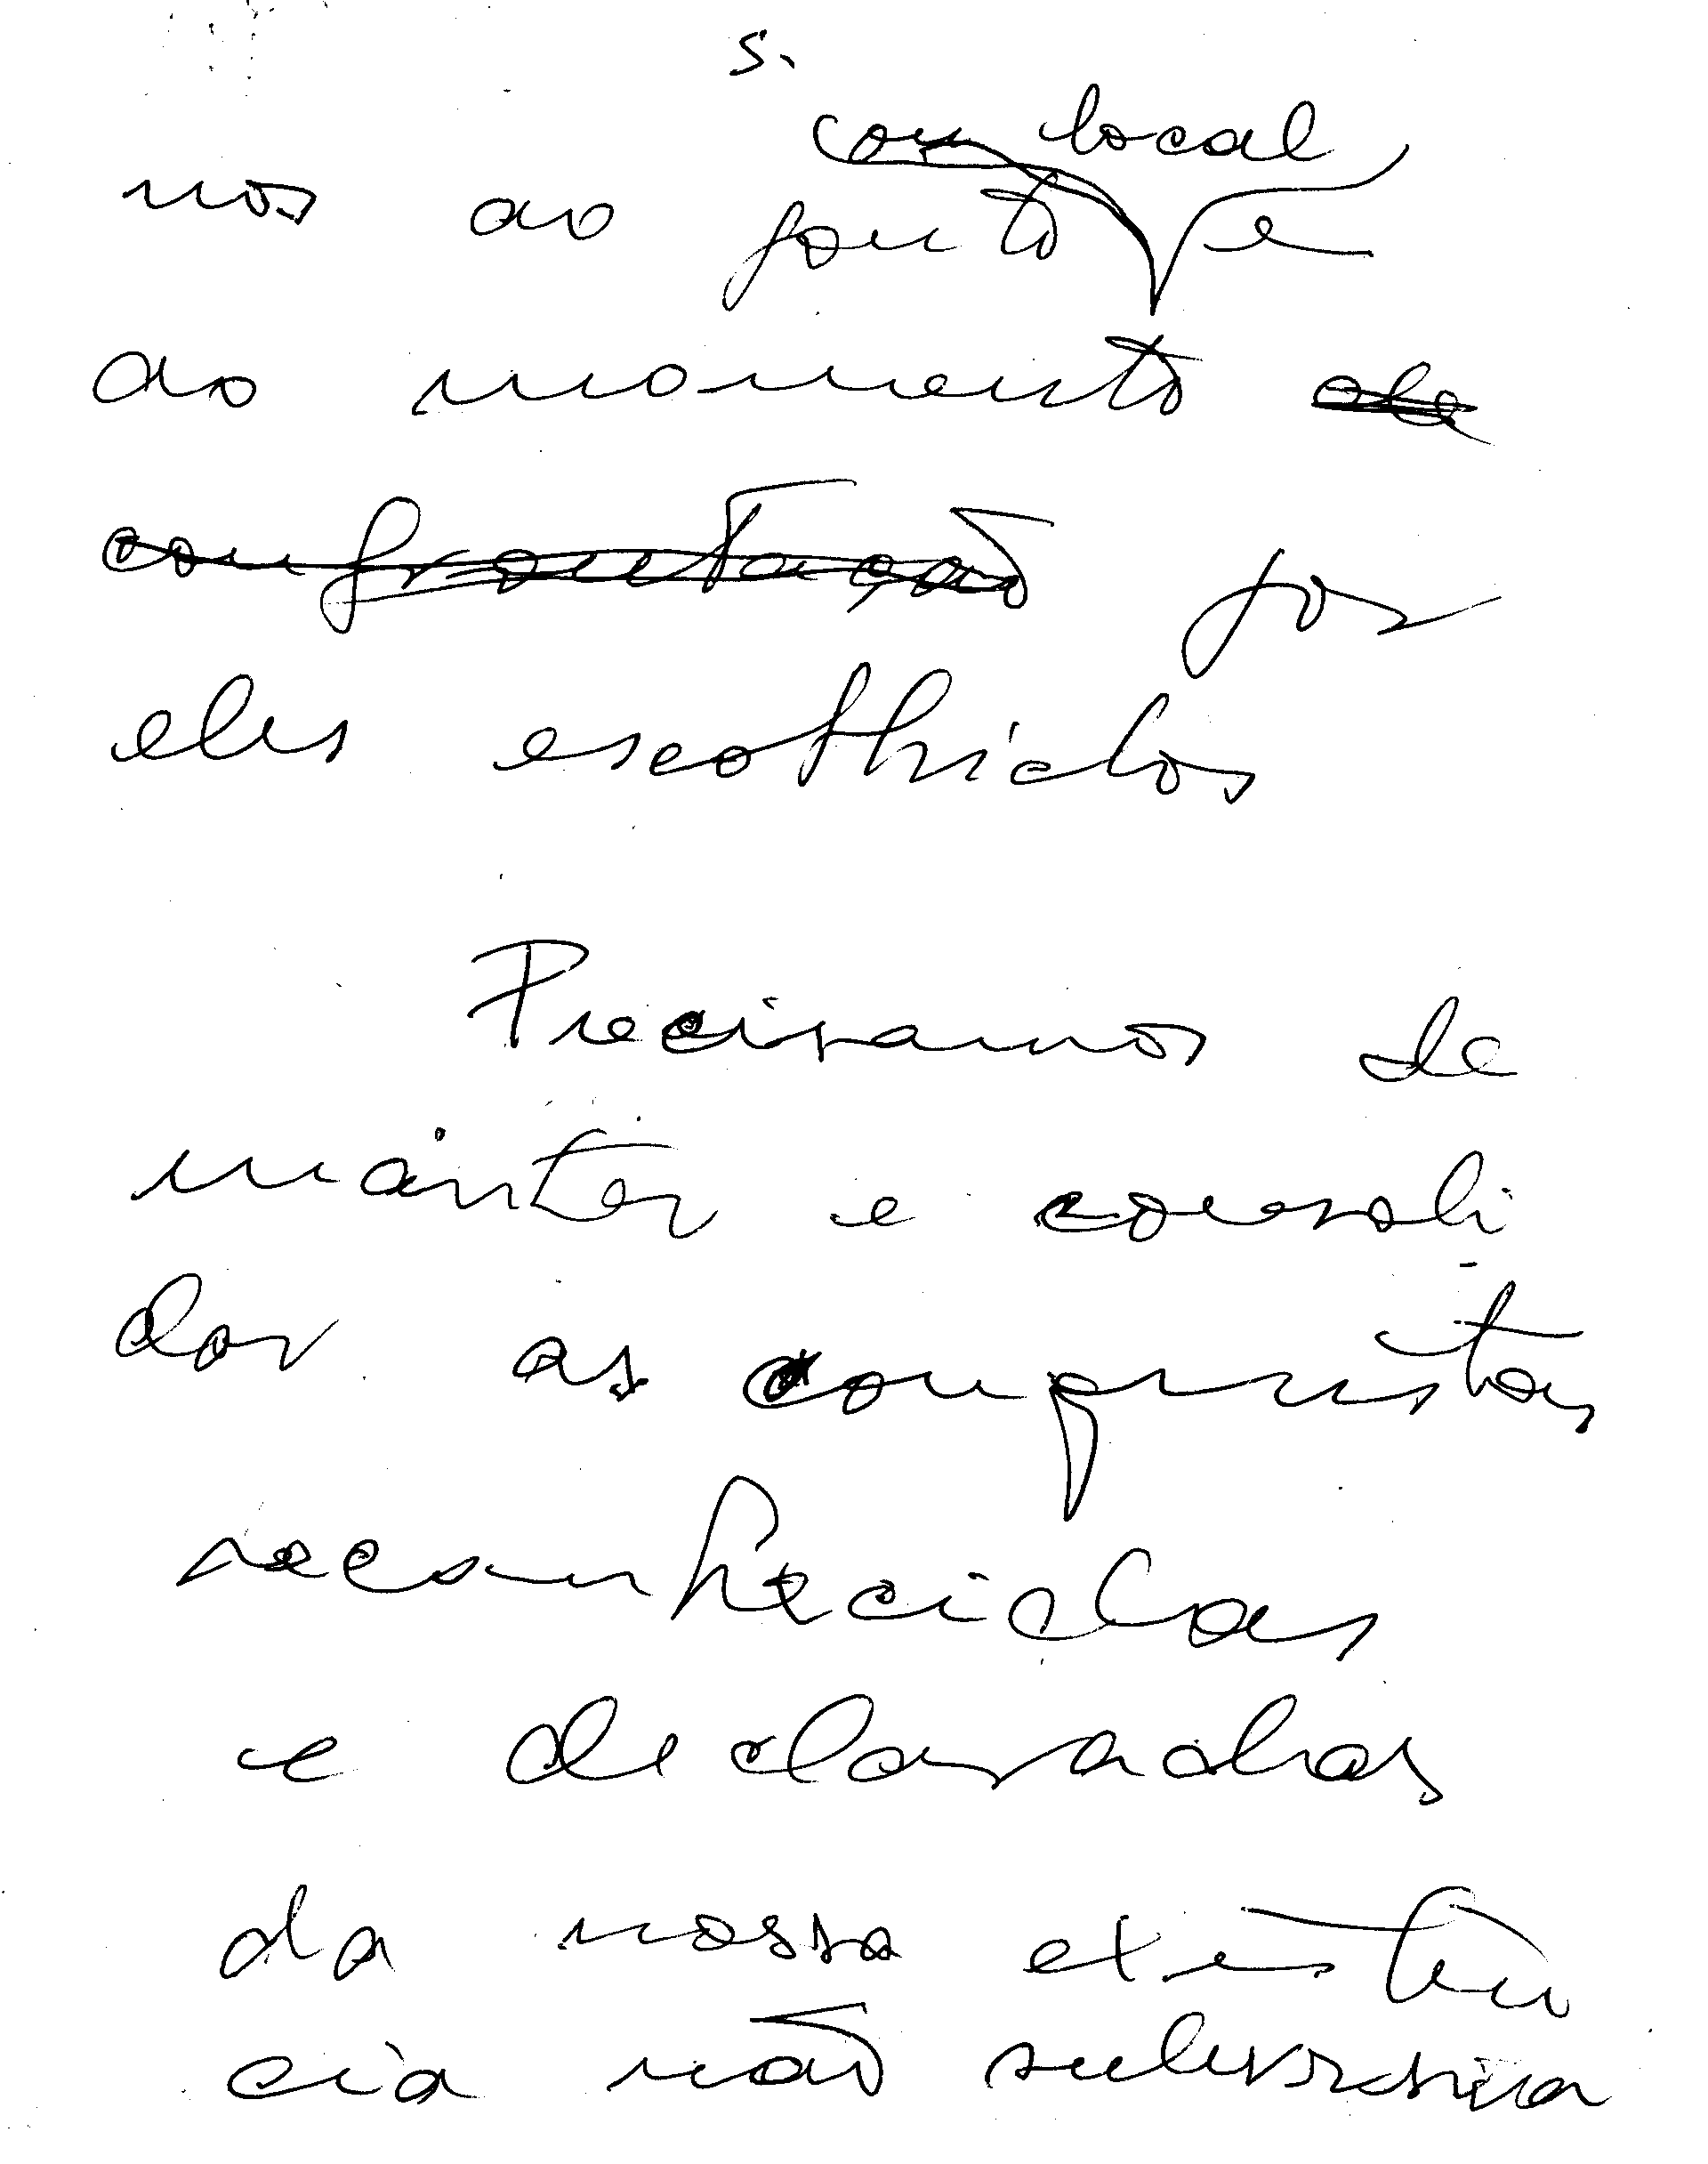 5.
com local
nos ao ponto e
ao momento de
confrontação por
eles escolhidos
Precisamos de
manter e consoli
dar as conquistas
reconhecidas
e declaradas
da nossa existên
cia não subversiva